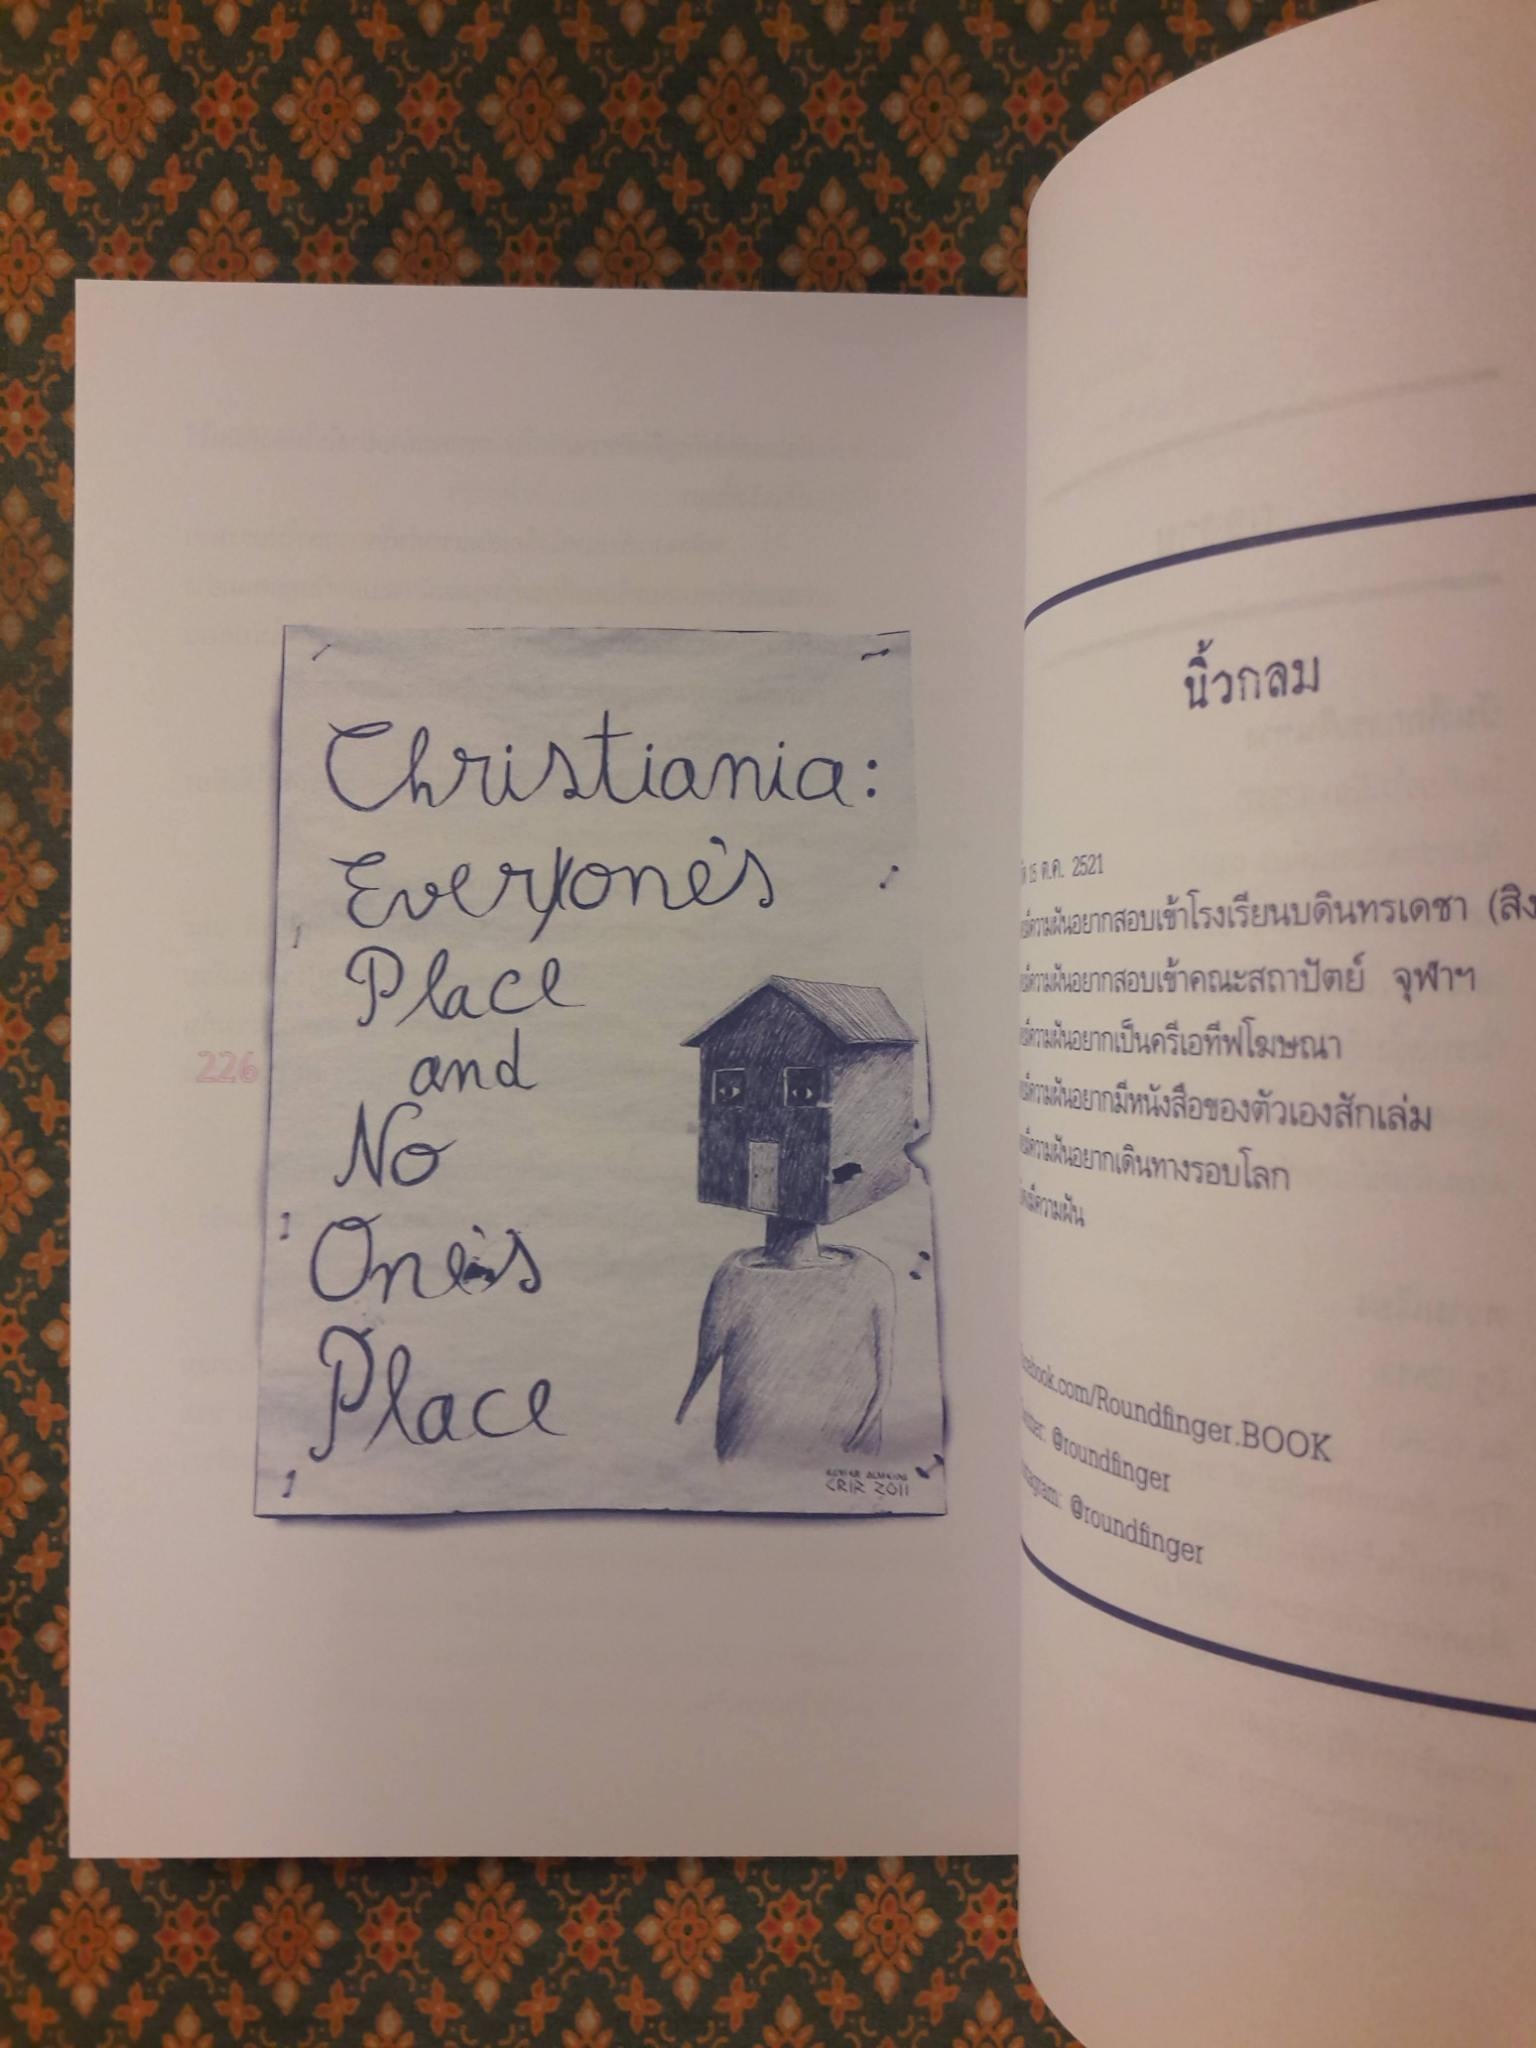 Christiania:
Everyone's
Place
and
No
One's
Place
CRIR 2011
226
นิ้วกลม
15 ต.ค. 2521
ความฝันอยากสอบเข้าโรงเรียนบดินทรเดชา (สิง
ความฝันอยากสอบเข้าคณะสถาปัตย์ จุฬาฯ
ความฝันอยากเป็นครีเอทีฟโฆษณา
ความฝันอยากมีหนังสือของตัวเองสักเล่ม
ความฝันอยากเดินทางรอบโลก
มีความฝัน
ebook.com/Roundfinger.BOOK
@roundfinger
@roundfinger